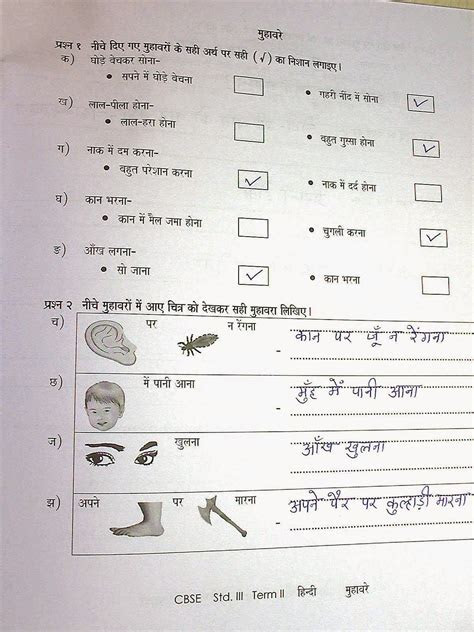 मुहावरे
प्रश्न १ नीचे दिए गए मुहावरों के सही अर्थ पर सही (✓) का निशान लगाइए।
क) घोड़े बेचकर सोना-
• सपने में घोड़े बेचना • गहरी नींद में सोना ✓
ख) लाल-पीला होना-
• लाल-हरा होना • बहुत गुस्सा होना ✓
ग) नाक में दम करना-
• बहुत परेशान करना ✓ • नाक में दर्द होना
घ) कान भरना-
• कान में मैल जमा होना • चुगली करना ✓
ङ) आँख लगना-
• सो जाना ✓ • कान भरना
प्रश्न २ नीचे मुहावरों में आए चित्र को देखकर सही मुहावरा लिखिए।
च) पर न रेंगना कान पर जूँ न रेंगना
छ) में पानी आना मुँह में पानी आना
ज) खुलना आँख खुलना
झ) अपने पर मारना अपने पैर पर कुल्हाड़ी मारना
CBSE Std. III Term II हिन्दी मुहावरे